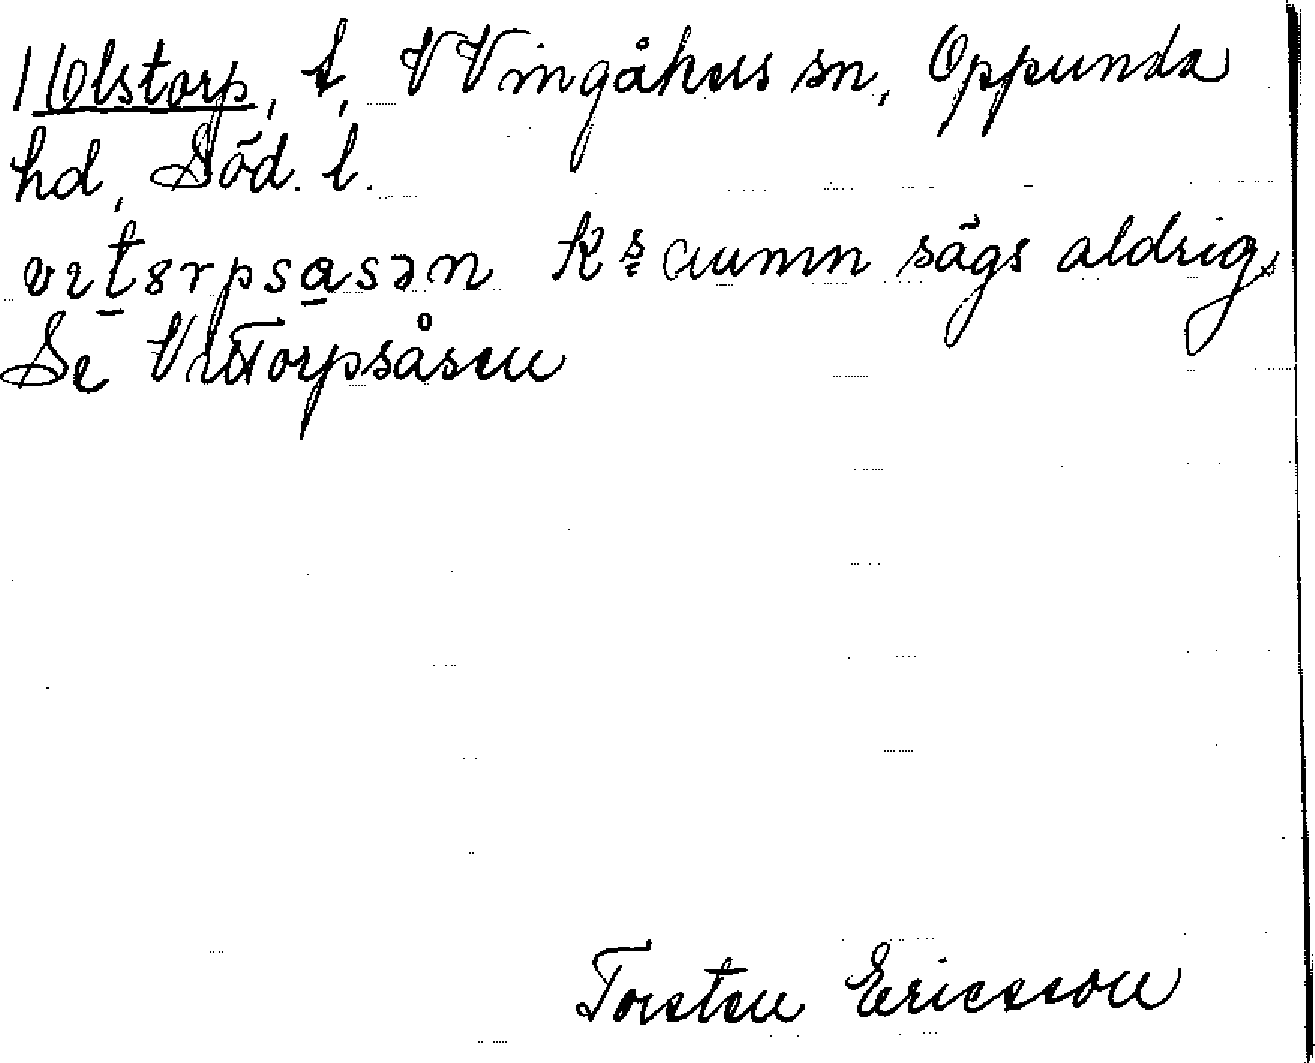 1 Olstorp, t, V Vingåkers sn, Oppunda
hd, Söd. l.
vɩtɵrpsasən K:s namn sägs aldrig,
Se Vittorpsåsen
Torsten Ericsson